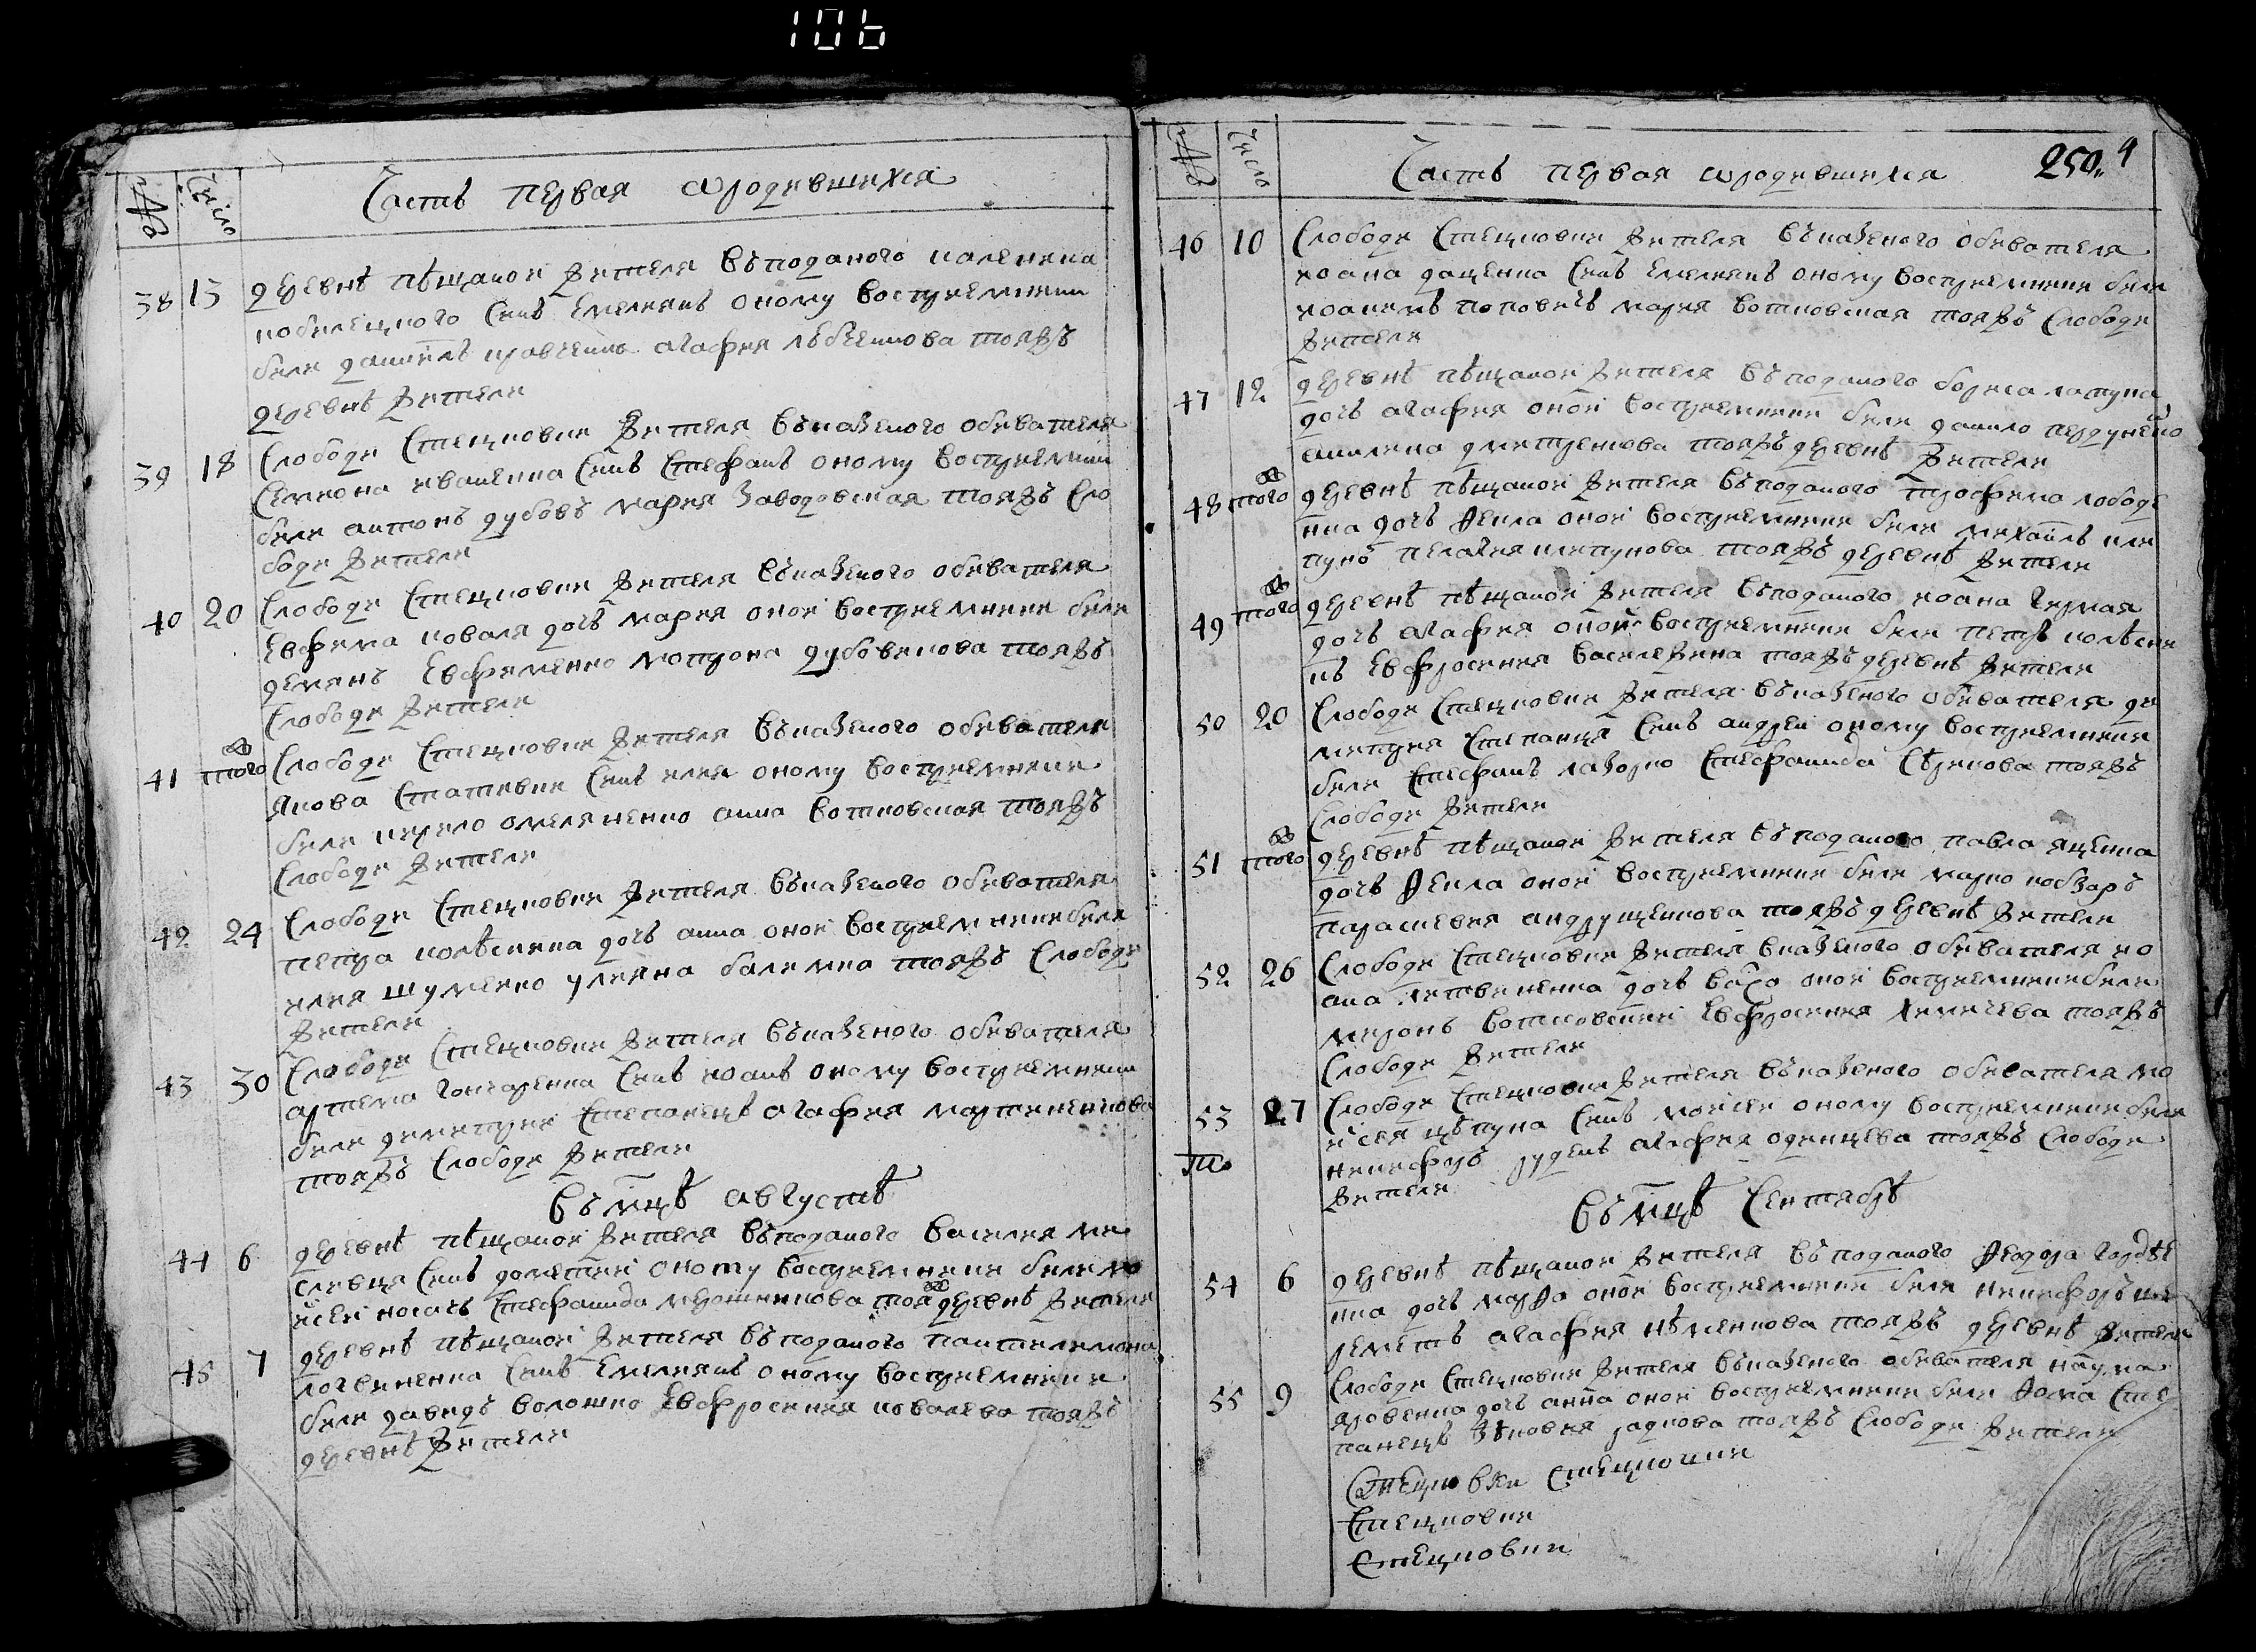 106
№ Число Часть первая ѡродившихся
38 13 деревнѣ пѣщаной жителя въподаного каленика
кобилецкого синъ Емелианъ оному восприемники
били даниилъ кравченко агафия лъбченкова тояжъ
деревнѣ жители
39 18 Слободи Стецковки жителя въказеного обивателя
Семиона иваненка синъ Стефанъ оному восприемники
били антонъ дубовъ мария заводовская тояжъ Сло
боди жители
40 20 Слободи Стецковки жителя въказеного обивателя
Евфима коваля дочъ мария оной восприемники били
демянъ Евфименко мотрона дубовикова тояжъ
Слободи жители
41 того Слободи Стецковки жителя въказеного обивателя
якова статівки синъ илия оному восприемники
били кирело омеляненко анна вотковская тояжъ
Слободи жители
42 24 Слободи Стецковки жителя въказеного обивателя
петра колѣсника дочъ анна оной восприемники били
илия шумейко улияна балимка тояжъ Слободи
жители
43 30 Слободи Стецковки жителя въказеного обивателя
артема гончаренка синъ иоанъ оному восприемники
били димитрий Степанецъ агафия мартиненкова
тояжъ Слободи жители
въ мцѣ августѣ
44 6 деревнѣ пѣщаной жителя въподаного василия ми
сливця синъ дометий оному восприемники били мо
исей носачъ Стефанида мирошникова тояжъ деревнѣ жители
45 7 деревнѣ пѣщаной жителя въподаного пантилимона
логвиненка синъ Емелианъ оному восприемники
били давидъ волошко Евфросиния ковалева тояжъ
деревнѣ жители
№ Число Часть первая ѡродившихся 250. 4
46 10 Слободи Стецковки жителя въказеного обивателя
иоана даценка синъ Емелианъ оному восприемники били
иоакимъ поповичъ мария вотковская тояжъ Слободи
жители
47 12 деревнѣ пѣщаной жителя въподаного бориса латуна
дочъ агафия оной восприемники били данило пердунено
акилина дмитренкова тояжъ деревнѣ жители
48 того деревнѣ пѣщаной жителя въподаного трофима лободе
нка дочъ Ѳекла оной восприемники били михаилъ кли
пунъ пелагия клепунова тояжъ деревнѣ жители
49 того деревнѣ пѣщаной жителя въподаного иоана чирмая
дочъ агафия оной восприемники били петръ колѣсни
къ Евфросиния василижина тояжъ деревнѣ жители
50 20 Слободи Стецковки жителя въказеного обивателя ди
митрия Степанця синъ андрей оному восприемники
били Стефанъ лазорко Стефанида Сѣрикова тояжъ
Слободи жители
51 того деревнѣ пѣщаной жителя въподаного павла яценка
дочъ Ѳекла оной восприемники били марко кобзаръ
параскевия андрущенкова тояжъ деревнѣ жители
52 26 Слободи Стецковки жителя вказеного обивателя ио
ана литвиненка дочъ оной восприемники били
миронъ вотковский Евфросиния тояжъ
Слободи жители
53 27 Слободи Стецковки жителя въказеного обивателя мо
исея цѣпуна синъ моисей оному восприемники били
никифоръ рудень агафия одинцева тояжъ Слободи
жители
въ мцѣ Сентябрѣ
54 6 деревнѣ пѣщаной жителя въподаного Ѳедора гордѣе
нка дочъ марѳа оной восприемники били никифоръ
агафия тояжъ деревнѣ жители
55 9 Слободи Стецковки жителя въказеного обивателя наума
яровенка дочъ анна оной восприемники били Ѳома Сте
панецъ Зѣновия радкова тояжъ Слободи жители
Стецковки
Стецковки
Стецковки